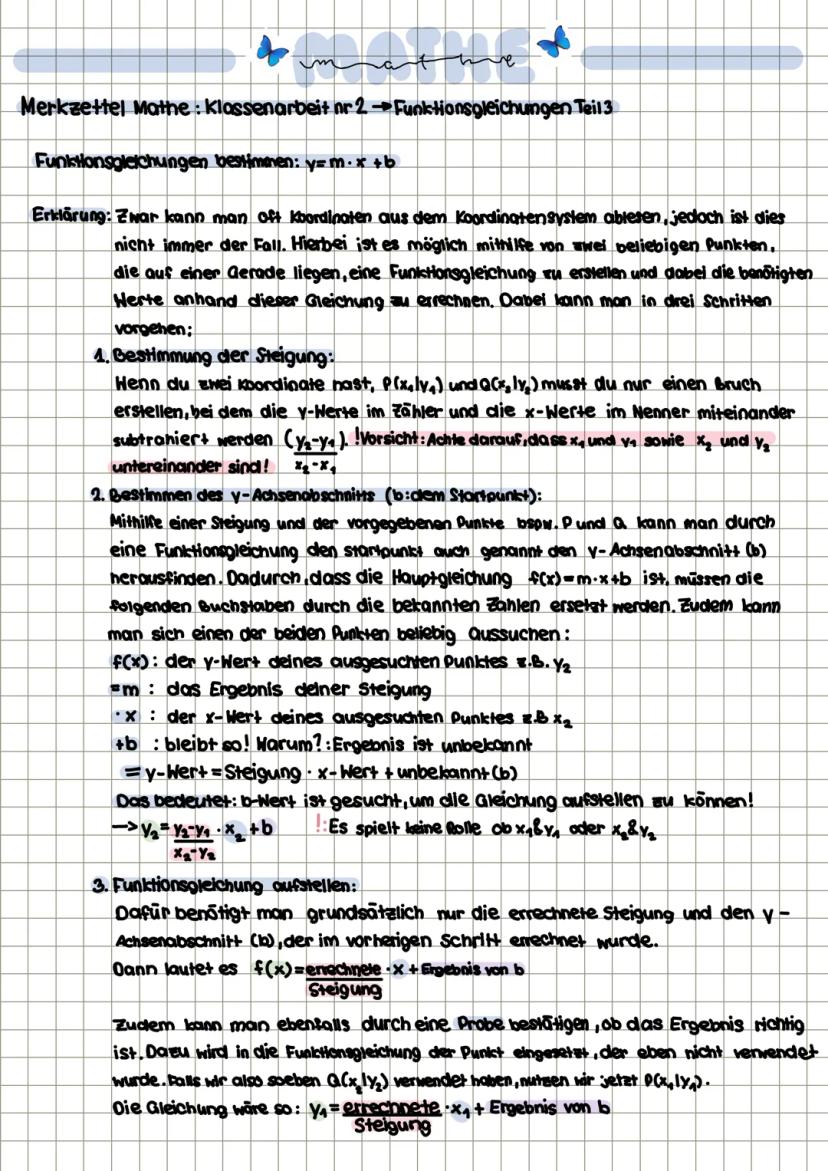 MATHE
mathe
Merkzettel Mathe: Klassenarbeit nr 2 → Funktionsgleichungen Teil 3
Funktionsgleichungen bestimmen: y=m·x+b
Erklärung: Zwar kann man oft Koordinaten aus dem Koordinatensystem ablesen, jedoch ist dies
nicht immer der Fall. Hierbei ist es möglich mithilfe von zwei beliebigen Punkten,
die auf einer Gerade liegen, eine Funktionsgleichung zu erstellen und dabei die benötigten
Werte anhand dieser Gleichung zu errechnen. Dabei kann man in drei Schritten
vorgehen:
1. Bestimmung der Steigung:
Wenn du zwei Koordinate hast, P(x₁|y₁) und Q(x₂|y₂) musst du nur einen Bruch
erstellen, bei dem die y-Werte im Zähler und die x-Werte im Nenner miteinander
subtrahiert werden (y₂-y₁). !Vorsicht: Achte darauf, dass x₁ und y₁ sowie x₂ und y₂
untereinander sind! x₂-x₁
2. Bestimmen des y-Achsenabschnitts (b:dem Startpunkt):
Mithilfe einer Steigung und der vorgegebenen Punkte bspw. P und Q kann man durch
eine Funktionsgleichung den startpunkt auch genannt den y-Achsenabschnitt (b)
herausfinden. Dadurch, dass die Hauptgleichung f(x)=m·x+b ist, müssen die
folgenden Buchstaben durch die bekannten Zahlen ersetzt werden. Zudem kann
man sich einen der beiden Punkten beliebig Aussuchen:
f(x): der y-Wert deines ausgesuchten Punktes z.B. y₂
=m : das Ergebnis deiner Steigung
·x : der x-Wert deines ausgesuchten Punktes z.B x₂
+b : bleibt so! Warum?: Ergebnis ist unbekannt
= y-Wert = Steigung · x-Wert + unbekannt (b)
Das bedeutet: b-Wert ist gesucht, um die Gleichung aufstellen zu können!
→ y₂= y₂-y₁ · x₂ +b !: Es spielt keine Rolle ob x₁&y₁ oder x₂&y₂
x₂-y₂
3. Funktionsgleichung aufstellen:
Dafür benötigt man grundsätzlich nur die errechnete Steigung und den y-
Achsenabschnitt (b), der im vorherigen Schritt errechnet wurde.
Dann lautet es f(x)= errechnete · x + Ergebnis von b
Steigung
Zudem kann man ebenfalls durch eine Probe bestätigen, ob das Ergebnis richtig
ist. Dazu wird in die Funktionsgleichung der Punkt eingesetzt, der eben nicht verwendet
wurde. Falls wir also soeben Q(x₂|y₂) verwendet haben, nutzen wir jetzt P(x₁|y₁).
Die Gleichung wäre so: y₁= errechnete · x₁ + Ergebnis von b
Steigung